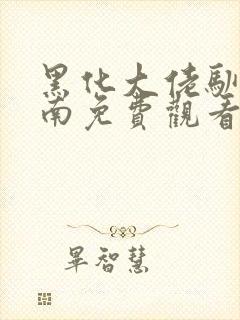 黑化大佬馴
南免費觀看
畢智慧